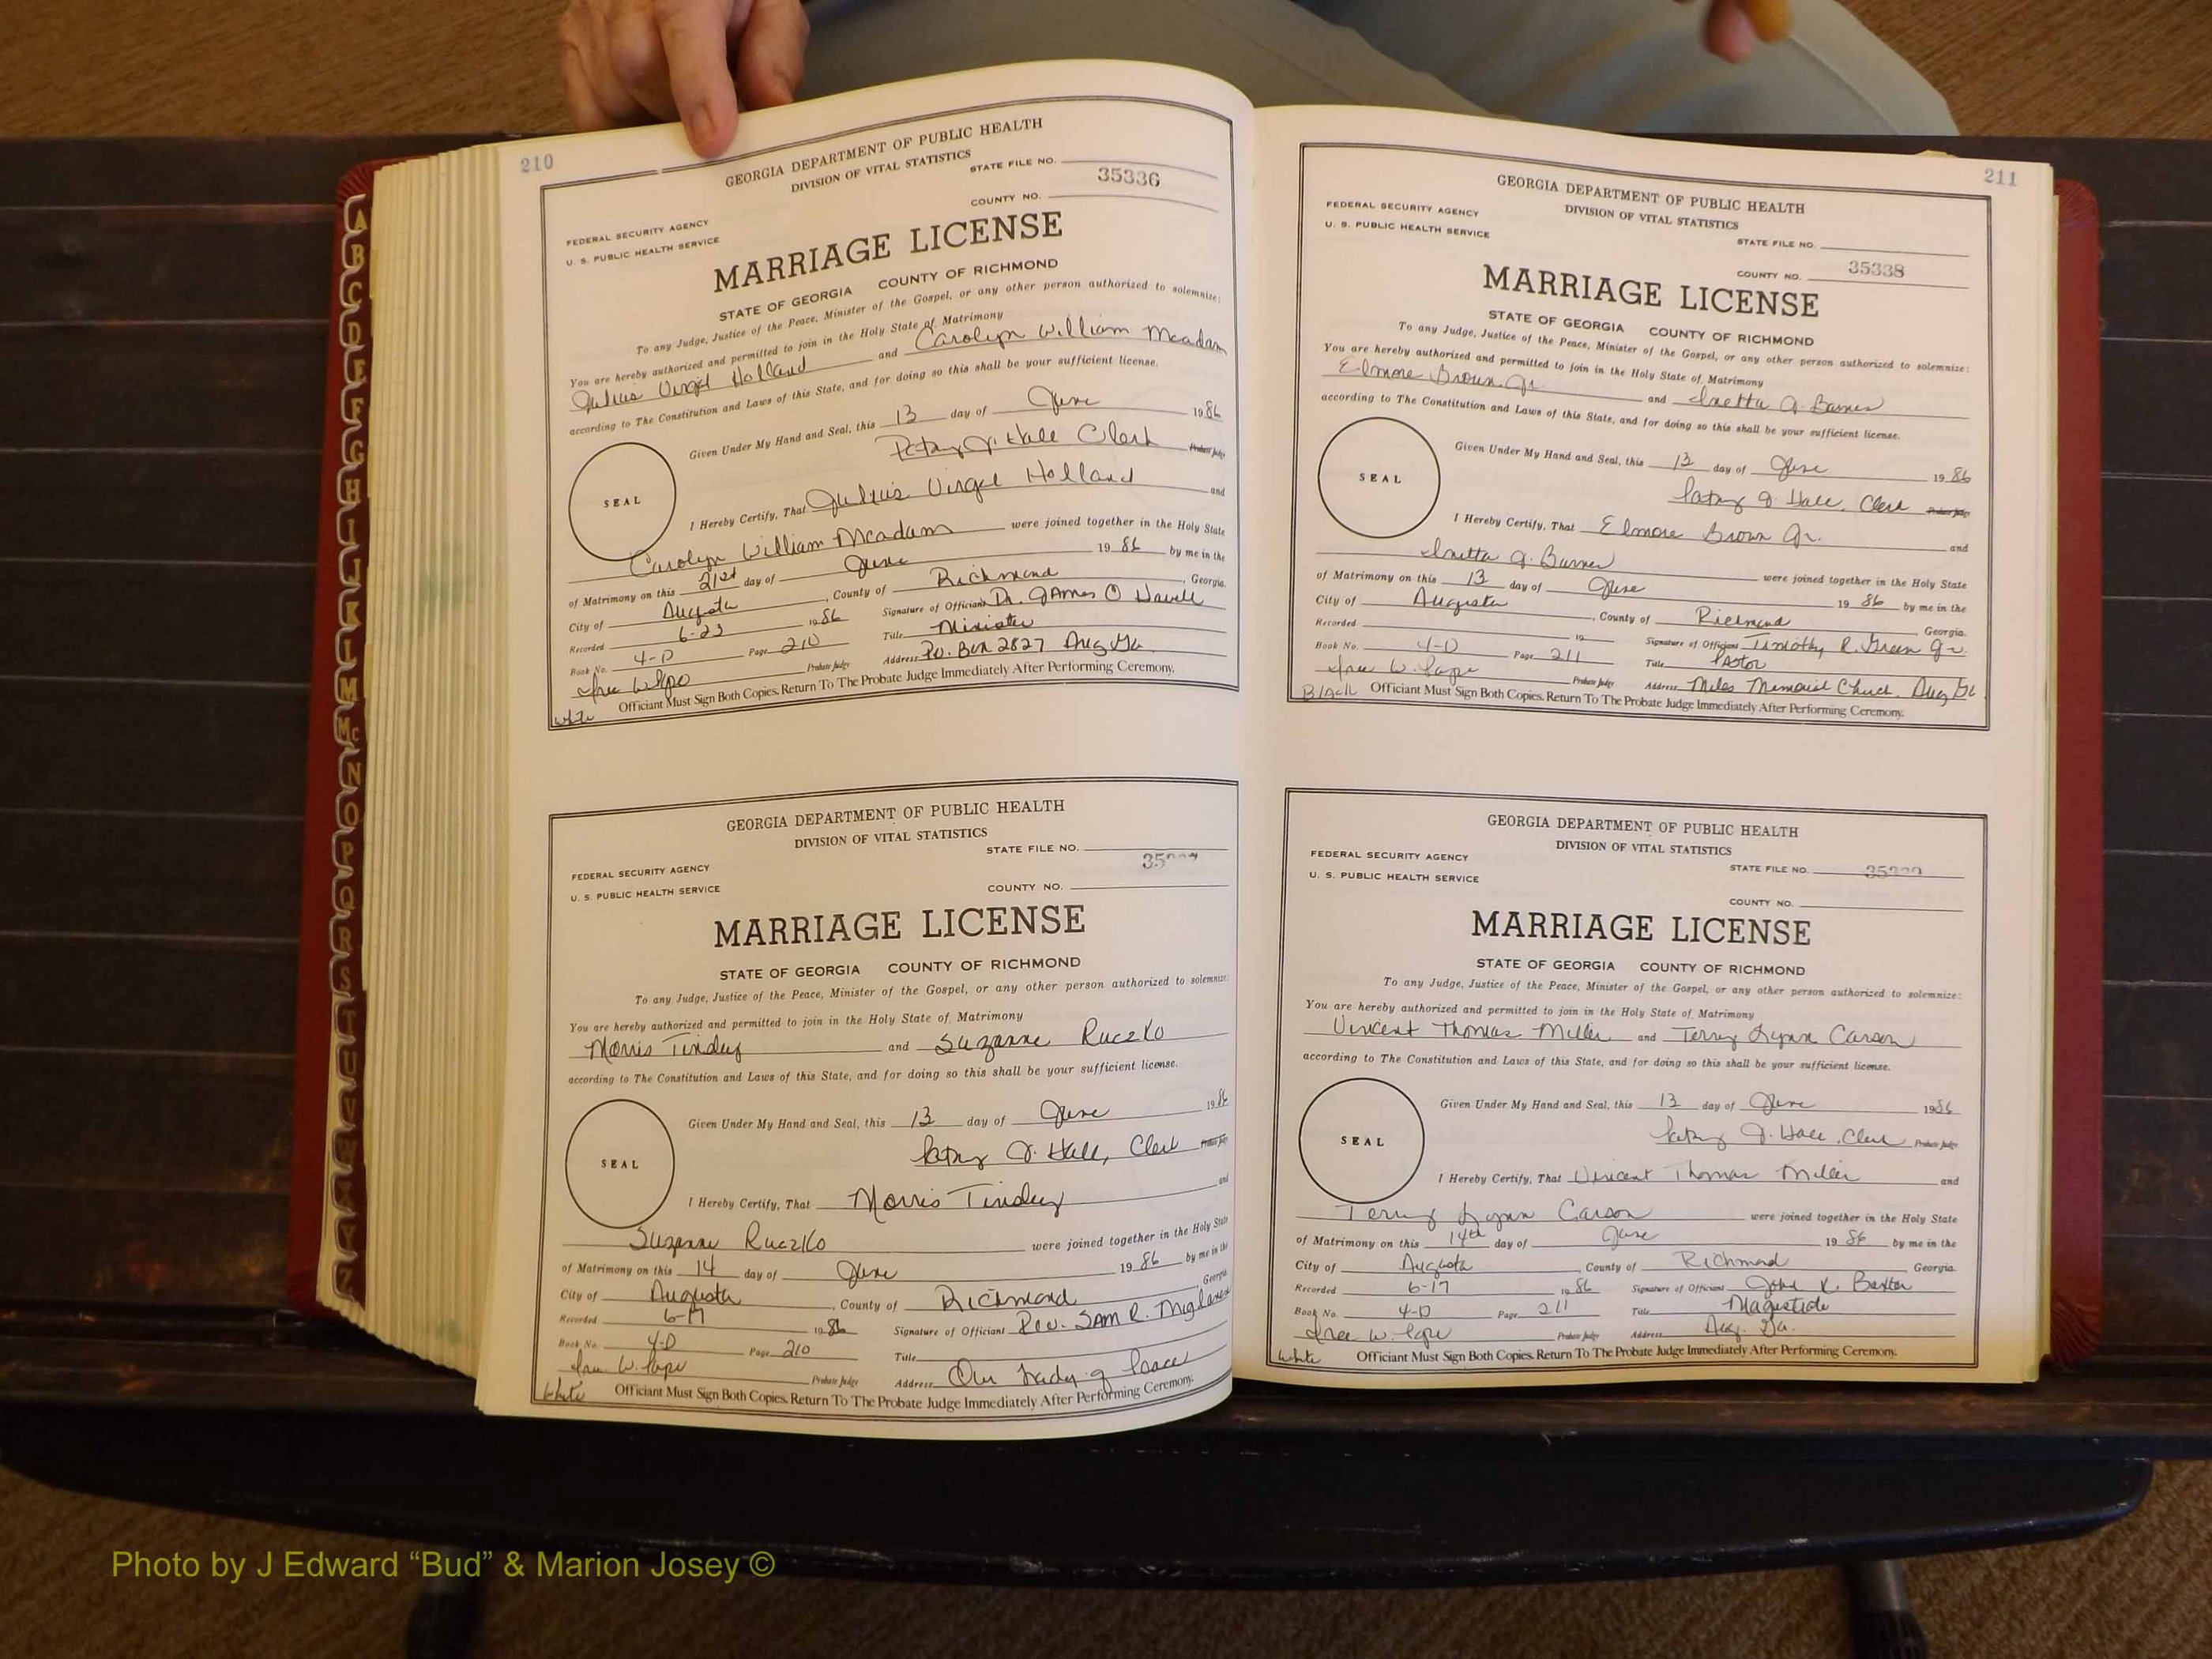 210
GEORGIA DEPARTMENT OF PUBLIC HEALTH
DIVISION OF VITAL STATISTICS
STATE FILE NO.
35336
COUNTY NO.
FEDERAL SECURITY AGENCY
U. S. PUBLIC HEALTH SERVICE
MARRIAGE LICENSE
STATE OF GEORGIA COUNTY OF RICHMOND
To any Judge, Justice of the Peace, Minister of the Gospel, or any other person authorized to solemnize:
You are hereby authorized and permitted to join in the Holy State of Matrimony
Julius Virgil Holland and Carolyn William Mcadam
according to The Constitution and Laws of this State, and for doing so this shall be your sufficient license.
Given Under My Hand and Seal, this 13 day of June 1986
Patsy J. Hall Clerk Probate Judge
SEAL
I Hereby Certify, That Julius Virgil Holland and
Carolyn William Mcadams were joined together in the Holy State
of Matrimony on this 21st day of June 1986 by me in the
City of Augusta, County of Richmond, Georgia.
Recorded 6-23 1986 Signature of Officiant Dr. James O
Book No. 4-D Page 210 Title Minister
Probate Judge Address P.O. Box 2827 Aug Ga.
Officiant Must Sign Both Copies. Return To The Probate Judge Immediately After Performing Ceremony.
White
GEORGIA DEPARTMENT OF PUBLIC HEALTH
DIVISION OF VITAL STATISTICS
STATE FILE NO.
FEDERAL SECURITY AGENCY
U. S. PUBLIC HEALTH SERVICE
COUNTY NO.
MARRIAGE LICENSE
STATE OF GEORGIA COUNTY OF RICHMOND
To any Judge, Justice of the Peace, Minister of the Gospel, or any other person authorized to solemnize:
You are hereby authorized and permitted to join in the Holy State of Matrimony
Morris Tindey and Suzanne Ruczko
according to The Constitution and Laws of this State, and for doing so this shall be your sufficient license.
Given Under My Hand and Seal, this 13 day of June 1986
Patsy J. Hall, Clerk Probate Judge
SEAL
I Hereby Certify, That Morris Tindey and
Suzanne Ruczko were joined together in the Holy State
of Matrimony on this 14 day of June 1986 by me in the
City of Augusta, County of Richmond, Georgia
Recorded 6-17 1986 Signature of Officiant Rev. Sam R.
Book No. 4-D Page 210 Title
Probate Judge Address Our Lady of Peace
White Officiant Must Sign Both Copies. Return To The Probate Judge Immediately After Performing Ceremony.
211
GEORGIA DEPARTMENT OF PUBLIC HEALTH
DIVISION OF VITAL STATISTICS
FEDERAL SECURITY AGENCY
U. S. PUBLIC HEALTH SERVICE
STATE FILE NO.
COUNTY NO. 35338
MARRIAGE LICENSE
STATE OF GEORGIA COUNTY OF RICHMOND
To any Judge, Justice of the Peace, Minister of the Gospel, or any other person authorized to solemnize:
You are hereby authorized and permitted to join in the Holy State of Matrimony
Elmore Brown Jr. and Inetta J. Barnes
according to The Constitution and Laws of this State, and for doing so this shall be your sufficient license.
Given Under My Hand and Seal, this 13 day of June 1986
Patsy J. Hall, Clerk Probate Judge
SEAL
I Hereby Certify, That Elmore Brown Jr. and
Inetta J. Barnes were joined together in the Holy State
of Matrimony on this 13 day of June 1986 by me in the
City of Augusta, County of Richmond, Georgia.
Recorded 19 Signature of Officiant Timothy R. Green Jr.
Book No. 4-D Page 211 Title Pastor
Probate Judge Address Miles Memorial Church, Aug Ga
Black Officiant Must Sign Both Copies. Return To The Probate Judge Immediately After Performing Ceremony.
GEORGIA DEPARTMENT OF PUBLIC HEALTH
DIVISION OF VITAL STATISTICS
FEDERAL SECURITY AGENCY
U. S. PUBLIC HEALTH SERVICE
STATE FILE NO.
COUNTY NO.
MARRIAGE LICENSE
STATE OF GEORGIA COUNTY OF RICHMOND
To any Judge, Justice of the Peace, Minister of the Gospel, or any other person authorized to solemnize:
You are hereby authorized and permitted to join in the Holy State of Matrimony
Vincent Thomas Miller and Terry Lynn Carson
according to The Constitution and Laws of this State, and for doing so this shall be your sufficient license.
Given Under My Hand and Seal, this 13 day of June 1986
Patsy J. Hall, Clerk Probate Judge
SEAL
I Hereby Certify, That Vincent Thomas Miller and
Terry Lynn Carson were joined together in the Holy State
of Matrimony on this 14th day of June 1986 by me in the
City of Augusta, County of Richmond, Georgia.
Recorded 6-17 1986 Signature of Officiant John K. Baxter
Book No. 4-D Page 211 Title Magistrate
Probate Judge Address Aug. Ga.
White Officiant Must Sign Both Copies. Return To The Probate Judge Immediately After Performing Ceremony.
A
B
C
D
E
F
G
H
I
J
K
L
M
Mc
N
O
P
Q
R
S
T
U
V
W
X
Y
Z
Photo by J Edward “Bud” & Marion Josey ©